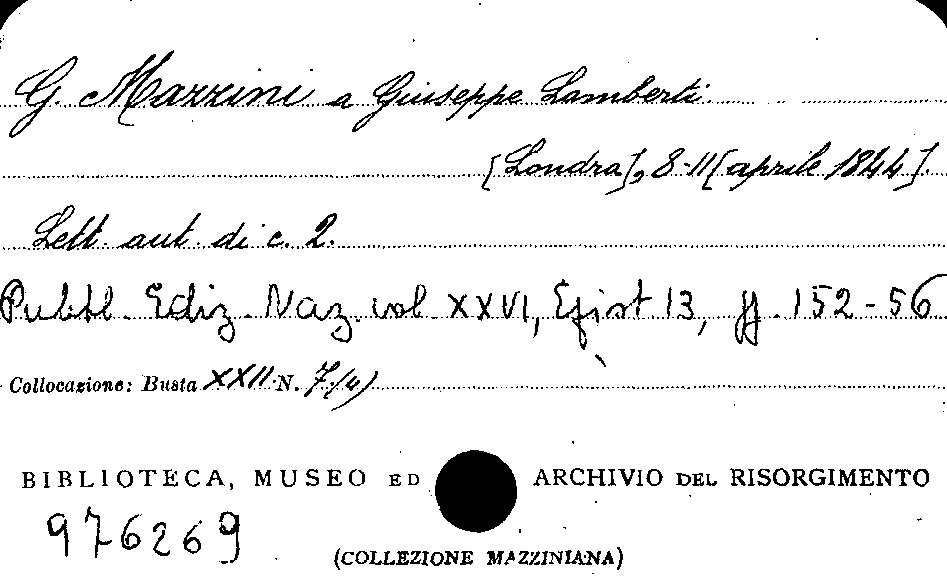 G. Mazzini a Giuseppe Lamberti.
[Londra], 8-11 [aprile 1844].
Lett. aut. di c. 2.
Pubbl. Ediz. Naz. vol XXVI, Epist. 13, pp. 152-56
Collocazione: Busta XXII N. 7/(4)
BIBLIOTECA, MUSEO ED ARCHIVIO DEL RISORGIMENTO
976269
(COLLEZIONE MAZZINIANA)